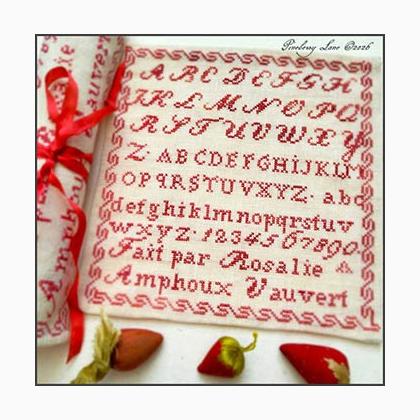 Pineberry Lane ©2026
A B C D E F G H
I J K L M N O P Q
R S T U V W X Y
Z. A B C D E F G H I J K L M
O P Q R S T U V X Y Z. a b c
d e f g h i k l m n o p q r s t u v
w x y z. 1 2 3 4 5 6 7 8 9 0
Fait par Rosalie
Amphoux Vauvert